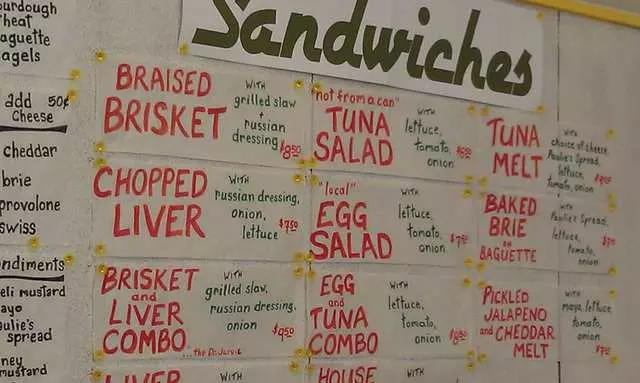 Sandwiches
ourdough
heat
aguette
agels
add 50¢
Cheese
cheddar
brie
provolone
swiss
ndiments
eli mustard
ayo
aulie's
spread
ney
mustard
BRAISED
BRISKET
WITH
grilled slaw
+
russian
dressing $8.50
CHOPPED
LIVER
WITH
russian dressing,
onion,
lettuce $7.50
BRISKET
and
LIVER
COMBO
...the Dr. Jarvis
WITH
grilled slaw,
russian dressing,
onion $9.50
LIVER
WITH
"not from a can"
TUNA
SALAD
WITH
lettuce,
tomato,
onion
"local"
EGG
SALAD
WITH
lettuce,
tomato,
onion $7.50
EGG
and
TUNA
COMBO
WITH
lettuce,
tomato,
onion $8.50
HOUSE
WITH
TUNA
MELT
WITH
choice of cheese,
Paulie's Spread,
lettuce,
tomato, onion
BAKED
BRIE
on
BAGUETTE
WITH
Paulie's Spread,
lettuce,
tomato,
onion
PICKLED
JALAPENO
and CHEDDAR
MELT
WITH
mayo, lettuce,
tomato,
onion